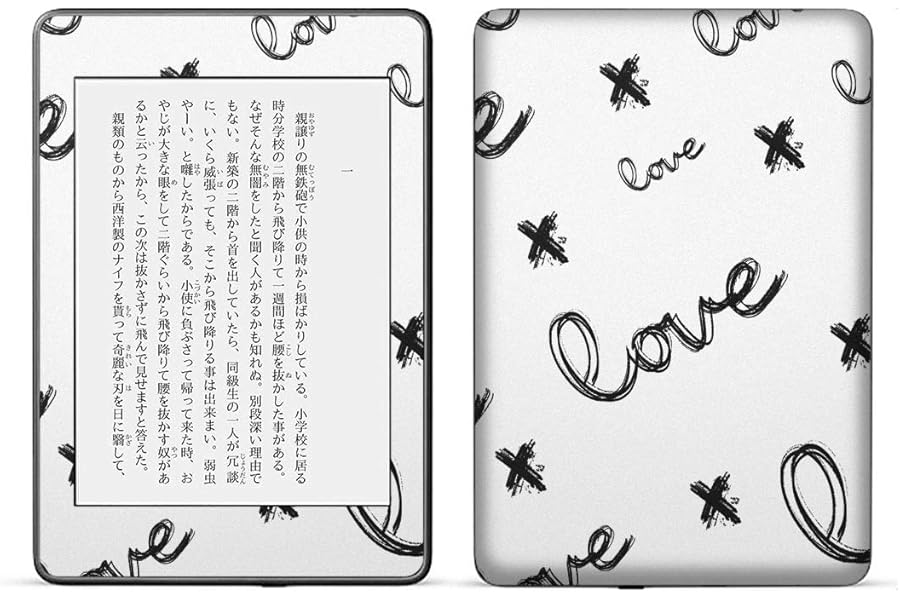 一
親譲りの無鉄砲で小供の時から損ばかりしている。小学校に居る
時分学校の二階から飛び降りて一週間ほど腰を抜かした事がある。
なぜそんな無闇をしたと聞く人があるかも知れぬ。別段深い理由で
もない。新築の二階から首を出していたら、同級生の一人が冗談
に、いくら威張っても、そこから飛び降りる事は出来まい。弱虫
やーい。と囃したからである。小使に負ぶさって帰って来た時、お
やじが大きな眼をして二階ぐらいから飛び降りて腰を抜かす奴があ
るかと云ったから、この次は抜かさずに飛んで見せますと答えた。
親類のものから西洋製のナイフを貰って奇麗な刃を日に翳して、
love
love
love
love
love